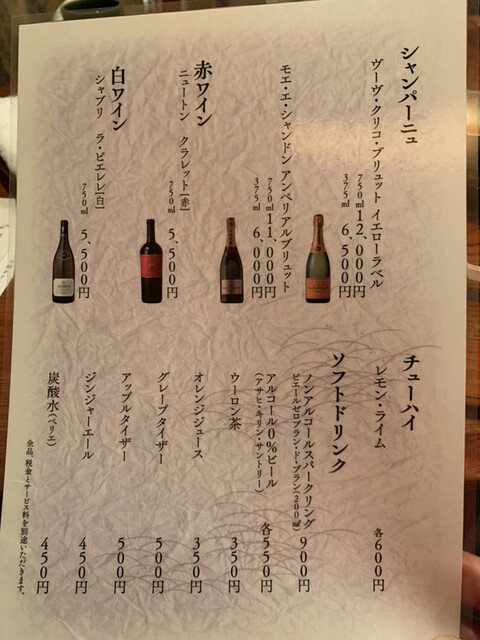 シャンパーニュ
ヴーヴ・クリコ・ブリュット イエローラベル
750ml 12,000円
375ml 6,500円
モエ・エ・シャンドン アンペリアルブリュット
750ml 11,000円
375ml 6,000円
赤ワイン
ニュートン クラレット[赤]
750ml 5,500円
白ワイン
シャブリ ラ・ピエレレ[白]
750ml 5,500円
チューハイ
レモン・ライム 各600円
ソフトドリンク
ノンアルコールスパークリング 900円
ピエールゼロブラン・ド・ブラン(200ml)
アルコール0%ビール 各550円
(アサヒ・キリン・サントリー)
ウーロン茶 350円
オレンジジュース 350円
グレープタイザー 500円
アップルタイザー 500円
ジンジャーエール 450円
炭酸水(ペリエ) 450円
全品、税金とサービス料を別途いただきます。